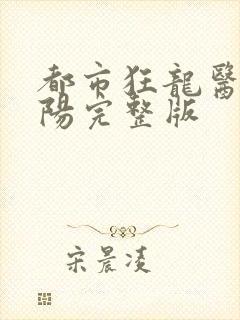 都市狂龍醫
陽完整版
宋晨凌